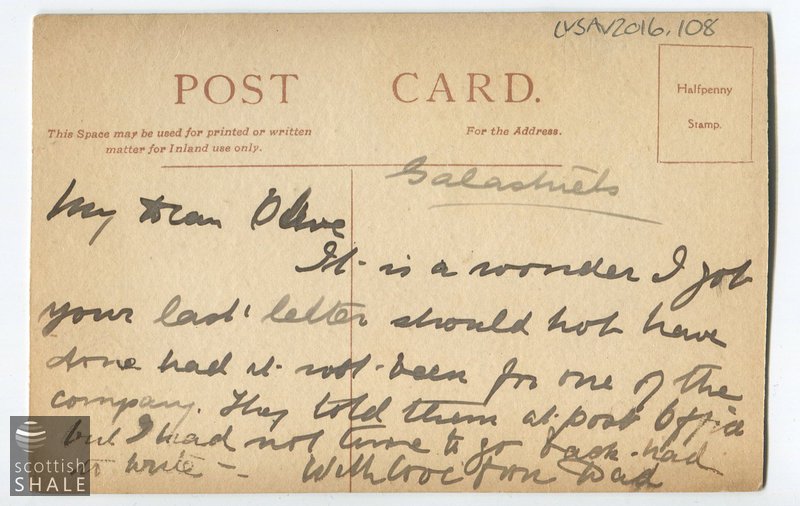 LVSAV2016.108
POST CARD.
This Space may be used for printed or written
matter for Inland use only.
For the Address.
Halfpenny
Stamp.
Galashiels
My Dear Olive
It is a wonder I got
your last letter should not have
done had it not been for one of the
company. They told them at post Office
but I had not time to go back had
to write - With love from Dad
scottish
SHALE